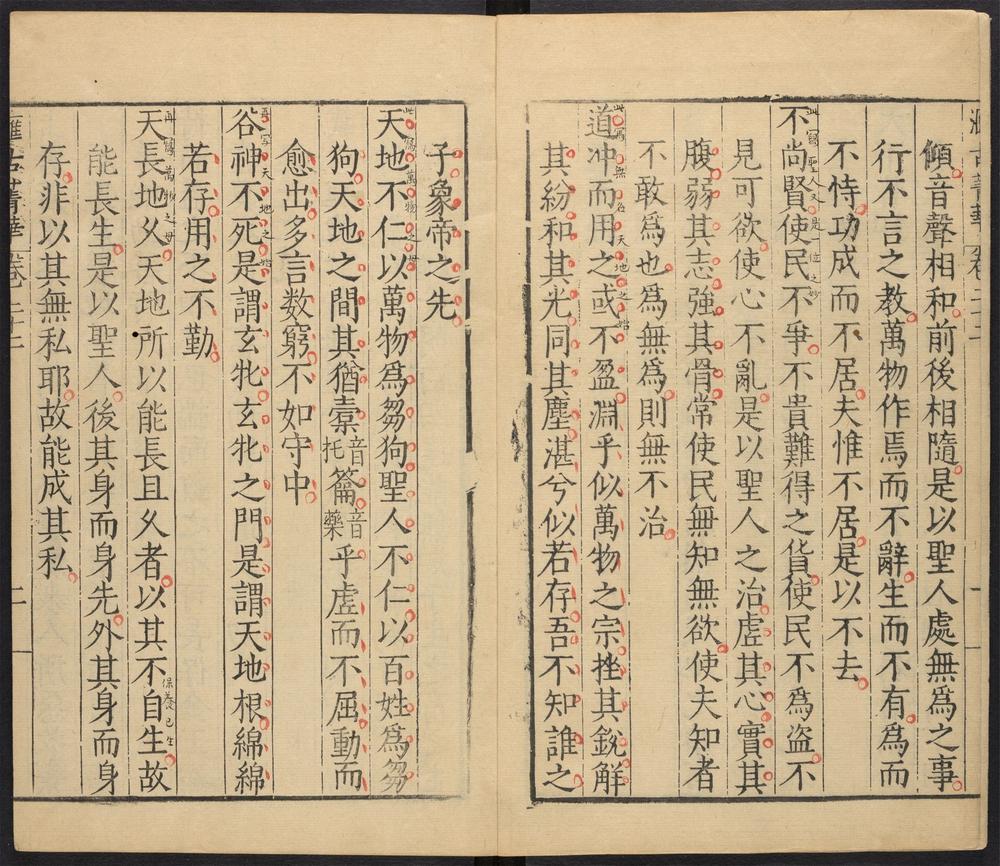 傾音聲相和前後相隨是以聖人處無為之事
行不言之教萬物作焉而不辭生而不有為而
不恃功成而不居夫惟不居是以不去
不尚賢使民不爭不貴難得之貨使民不為盜不
見可欲使心不亂是以聖人之治虛其心實其
腹弱其志強其骨常使民無知無欲使夫知者
不敢為也為無為則無不治
此寫無名天地之始
道冲而用之或不盈淵乎似萬物之宗挫其銳解
其紛和其光同其塵湛兮似若存吾不知誰之
子象帝之先
此寫萬物之母
天地不仁以萬物為芻狗聖人不仁以百姓為芻
狗天地之間其猶橐音托籥音藥乎虛而不屈動而
愈出多言数窮不如守中
再寫天地之始
谷神不死是謂玄牝玄牝之門是謂天地根綿綿
若存用之不勤
再寫萬物之母
天長地久天地所以能長且久者以其不自生故
保養己生
能長生是以聖人後其身而身先外其身而身
存非以其無私耶故能成其私
二